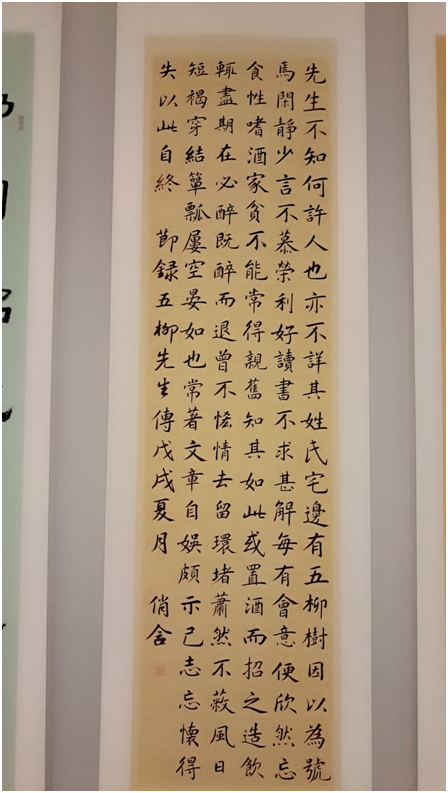 先生不知何許人也亦不詳其姓氏宅邊有五柳樹因以為號
焉閑靜少言不慕榮利好讀書不求甚解每有會意便欣然忘
食性嗜酒家貧不能常得親舊知其如此或置酒而招之造飲
輒盡期在必醉既醉而退曾不恡情去留環堵蕭然不蔽風日
短褐穿結簞瓢屢空晏如也常著文章自娛頗示己志忘懷得
失以此自終 節錄五柳先生傳戊戌夏月 俏含